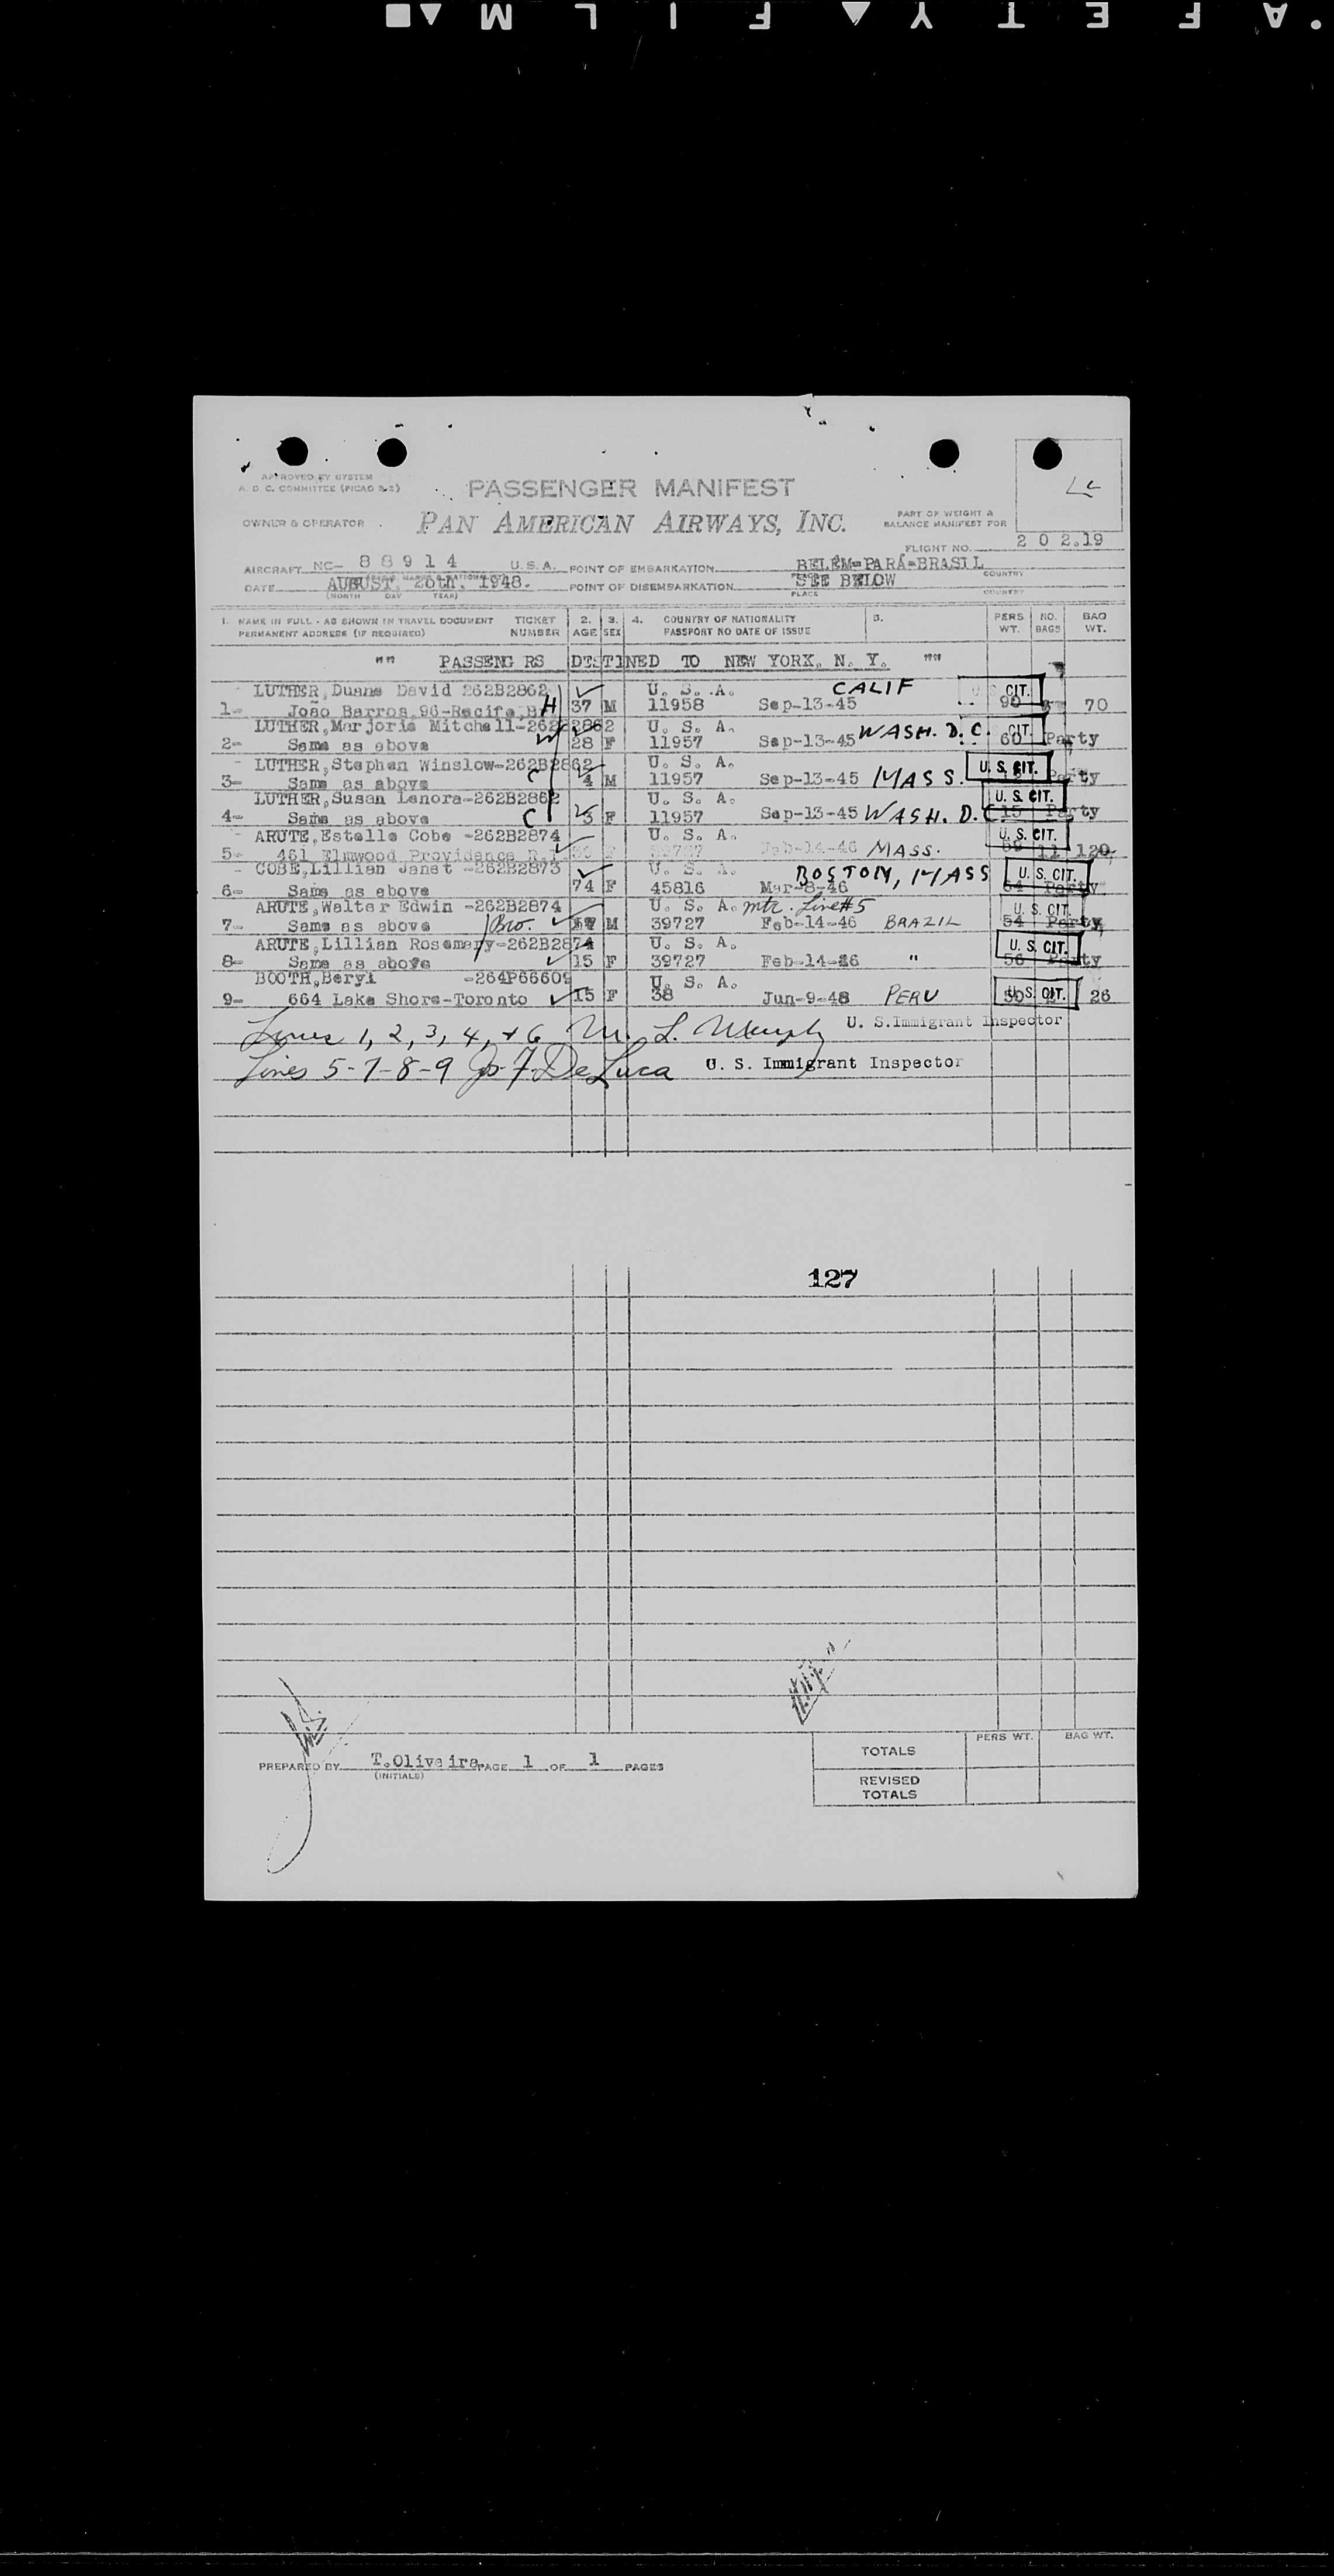 SAFETY ▲ FILM ■▲
APPROVED BY SYSTEM
A. D. C. COMMITTEE (PICAO 2.2)
PASSENGER MANIFEST
OWNER & OPERATOR PAN AMERICAN AIRWAYS, INC.
PART OF WEIGHT &
BALANCE MANIFEST FOR
FLIGHT NO. 202.19
AIRCRAFT NC- 88914 U.S.A. POINT OF EMBARKATION BELÉM-PARÁ-BRASIL
COUNTRY
DATE AUGUST, 20th, 1948. POINT OF DISEMBARKATION SEE BELOW
(MONTH DAY YEAR) PLACE COUNTRY
1. NAME IN FULL - AS SHOWN IN TRAVEL DOCUMENT TICKET 2. 3. 4. COUNTRY OF NATIONALITY 5. PERS NO. BAG
PERMANENT ADDRESS (IF REQUIRED) NUMBER AGE SEX PASSPORT NO DATE OF ISSUE WT. BAGS WT.
"" PASSENG RS DESTINED TO NEW YORK, N. Y. ""
LUTHER,Duane David 262B2862 U. S. A. CALIF U. S. CIT.
1- João Barros,96-Recife,B H 37 M 11958 Sep-13-45 90 70
LUTHER,Marjorie Mitchell-262B2862 U. S. A. WASH. D. C. CIT.
2- Same as above W 28 F 11957 Sep-13-45 60 Party
LUTHER,Stephen Winslow-262B2862 U. S. A. U. S. CIT.
3- Same as above C 4 M 11957 Sep-13-45 MASS. Party
LUTHER,Susan Lenora-262B2862 U. S. A. U. S. CIT.
4- Same as above C 3 F 11957 Sep-13-45 WASH. D. C. 15 Party
ARUTE,Estelle Cobe -262B2874 U. S. A. U. S. CIT.
5- 461 Elmwood Providence R. F Feb-14-46 MASS. 11 120
COBE,Lillian Janet -262B2873 U. S. A. BOSTON, MASS U. S. CIT.
6- Same as above 74 F 45816 Mar-8-46 64 Party
ARUTE,Walter Edwin -262B2874 U. S. A. mtr. Line #5 U. S. CIT.
7- Same as above Bro. M 39727 Feb-14-46 BRAZIL 54 Party
ARUTE,Lillian Rosemary-262B2874 U. S. A. U. S. CIT.
8- Same as above 15 F 39727 Feb-14-46 " 56 Party
BOOTH,Beryl -264P66609 U. S. A.
9- 664 Lake Shore-Toronto 15 F 38 Jun-9-48 PERU 50 U. S. CIT. 26
Lines 1, 2, 3, 4, + 6 M. L. Murphy U. S. Immigrant Inspector
Lines 5-7-8-9 Jos. F. DeLuca U. S. Immigrant Inspector
127
TOTALS PERS WT. BAG WT.
PREPARED BY T.Oliveira PAGE 1 OF 1 PAGES
(INITIALS)
REVISED
TOTALS